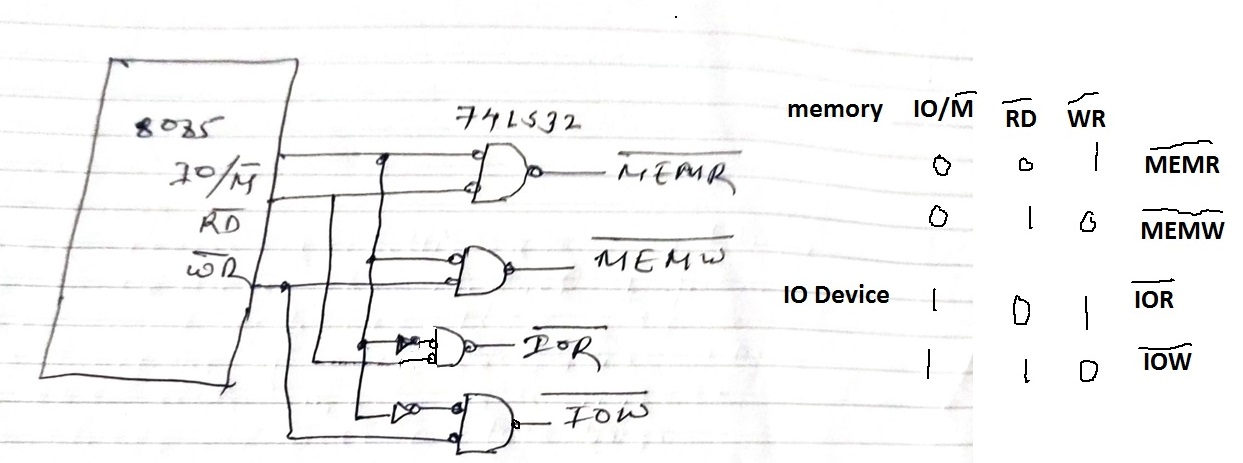 74LS32
8085
IO/M̅
R̅D̅
W̅R̅
M̅E̅M̅R̅
M̅E̅M̅W̅
I̅O̅R̅
I̅O̅W̅
memory IO/M̅ R̅D̅ W̅R̅
0 0 1 M̅E̅M̅R̅
0 1 0 M̅E̅M̅W̅
IO Device 1 0 1 I̅O̅R̅
1 1 0 I̅O̅W̅